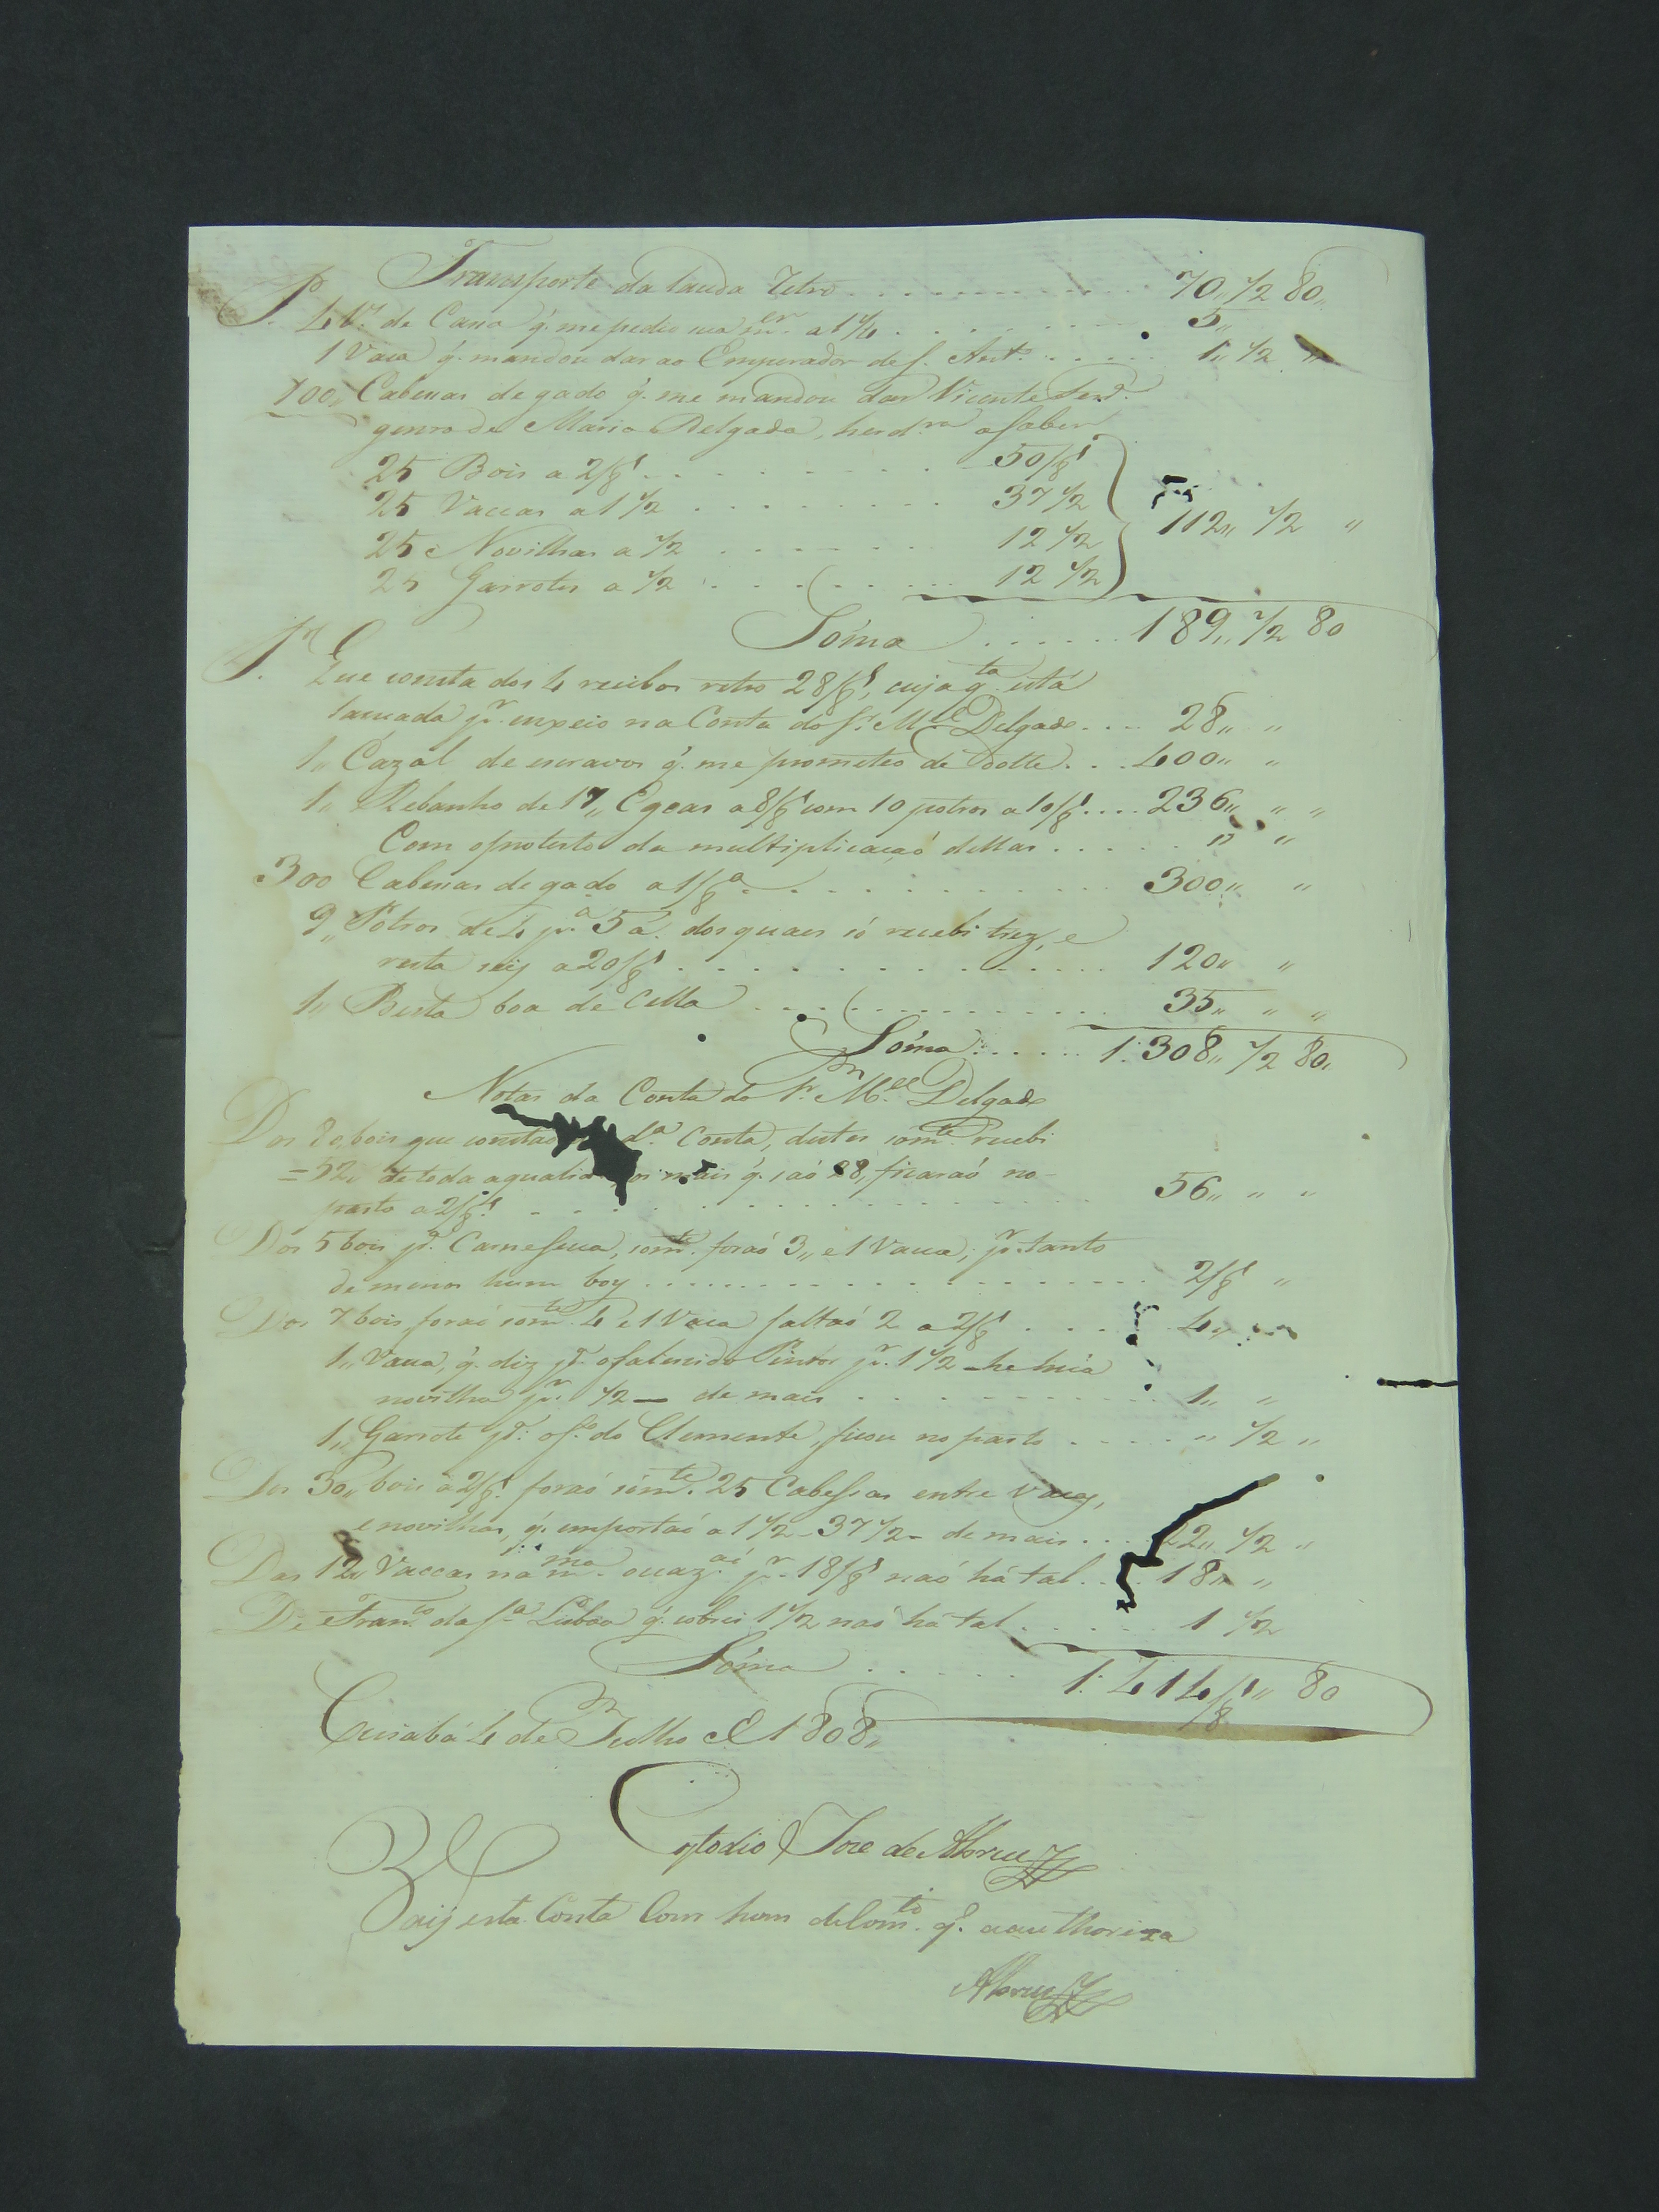 Transporte da lauda Retro . . . . . . . . . . . 70,, 1/2 80,,
P. 4 V.s de Cassa q̃. me pedio sua m.er a 1 1/4 . . . . . . . 5,,
1 Vaca q̃. mandou dar ao Emperador de S. Ant.o . . . . . 1,, 1/2 ,,
100,, Cabessas de gado q̃. me mandou dar Vicente Ferr.a
genro de Maria Delgada, herd.ra asaber
25 Bois a 2/8.s . . . . . . . . . 50/8.s
25 Vaccas a 1 1/2 . . . . . . . . . 37 1/2
112,, 1/2 ,,
25 Novilhas a 1/2 . . . . . . 12 1/2
25 Garrotes a 1/2 . . . . . . 12 1/2
Sôma . . . . . . 189,, 1/2 80
P. Que consta dos 4 recibos retro 28/8.s, cuja q.ta está
lancada p.r enxeio na Conta do S.r M.el Delgado . . . 28,, ,,
1,, Cazal de escravos q̃. me prometeo de dotte . . . 400,, ,,
1,, Rebanho de 17,, Egoas a 8/8.s com 10 potros a 10/8.s . . . . 236,, ,, ,,
Com oprotesto da multiplicacaõ dellas . . . . . ,, ,,
300 Cabessas de gado a 1/8.a . . . . . . . . . . . 300,, ,,
9,, Potros de 4 p.a 5 a. dos quaes só recebi trez, e
resta seis a 20/8.s . . . . . . . . . . . . . . 120,, ,,
1,, Besta boa de Cella . . . . . . . . . . . . . 35,, ,, ,,
Sôma . . . . . 1: 308,, 1/2 80,,
Notas da Conta do S.r M.el Delgado
Dos 80,, bois que consta d.a Conta, destes som.te recebi
= 52,, de toda aqualid os mais q̃. saõ 28,, ficaraõ no
pasto a 2/8.s . . . . . . . . . . . . . . . . . . 56,, ,, ,,
Dos 5 bois p.a Carne seca, som.te foraõ 3,, e 1 Vacca, p.r tanto
de menos hum boy . . . . . . . . . . . . . . . . . 2/8.s ,,
Dos 7 bois foraõ som.te 4 e 1 Vaca faltaõ 2 a 2/8.s . . . . 4,,
1,, Vacca, q̃. diz p.a ofalescido Pintor p.r 1 1/2 - he huã
novilha p.r 1/2 - de mais . . . . . . . . . . . 1,, ,,
1,, Garrote p.a o S.r do Clemente, ficou no pasto . . . . ,, 1/2 ,,
Dos 30,, bois a 2/8.s foraõ som.te 25 Cabessas entre Vacas,
e novilhas, q̃. emportaõ a 1 1/2 - 37 1/2 - de mais . . . 22,, 1/2 ,,
Das 12,, Vaccas na m.ma ocaz.aõ p.r 18/8.s naõ há tal . . . . 18,, ,,
De Fran.co da S.a Lisboa q̃. cobrei 1 1/2 naõ há tal . . . . . 1 1/2
Sôma . . . . . 1: 414/8.s,, 80
Cuiabá 4 de Julho de 1808,,
Costodio Jose de Abreu
Vaij esta Conta Com hum docom.to q̃. aauthoriza
Abreu